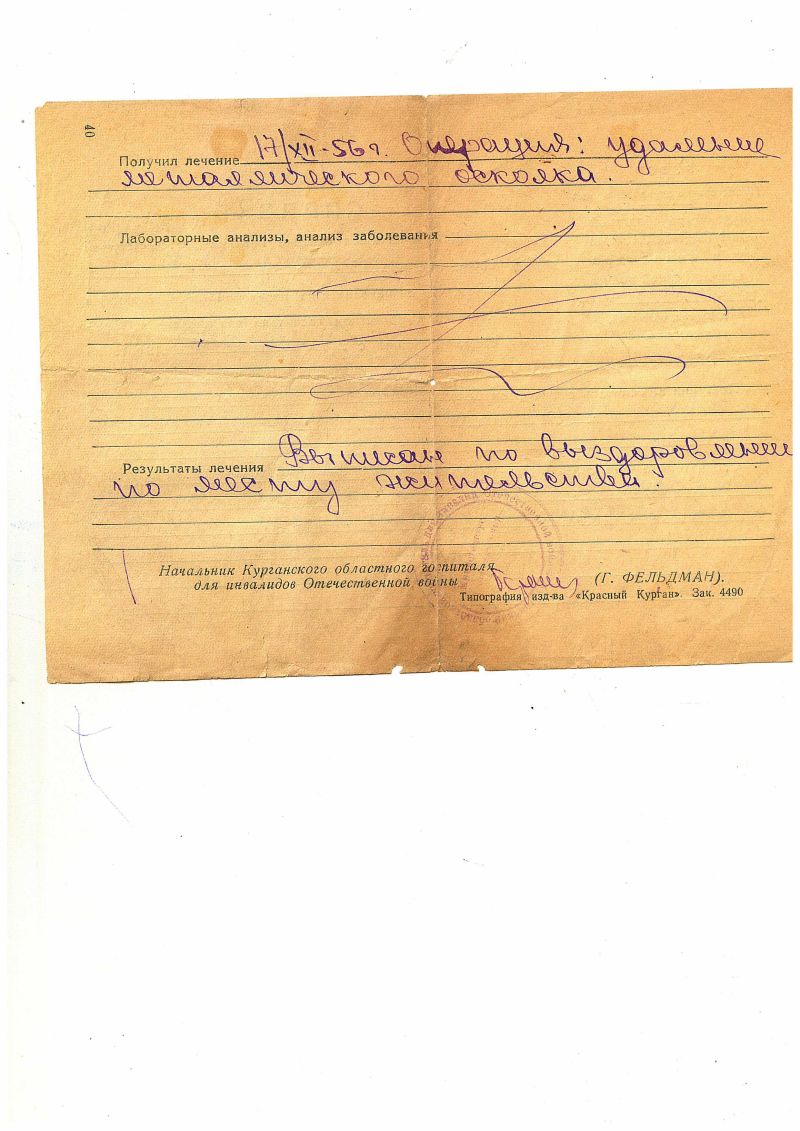 40
Получил лечение 17/XII-56г. Операция: удаление
металлического осколка.
Лабораторные анализы, анализ заболевания
Результаты лечения Выписан по выздоровлении
по месту жительства.
Начальник Курганского областного госпиталя
для инвалидов Отечественной войны (Г. ФЕЛЬДМАН).
Типография изд-ва «Красный Курган». Зак. 4490